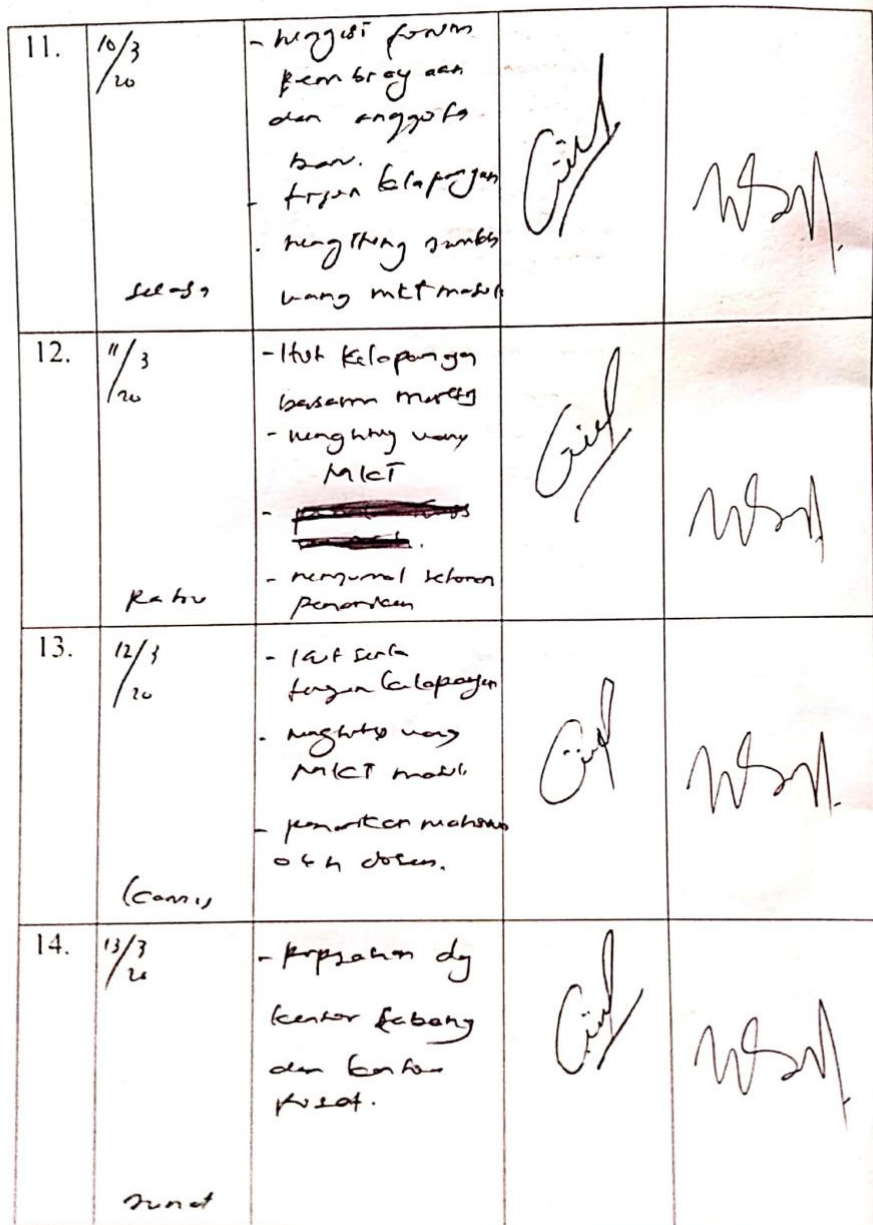 11.
10/3/20
selasa
- mengisi form
pembiayaan
dan anggota
baru.
- terjun kelapangan
- menghitung jumlah
uang MKT masuk
12.
11/3/20
Rabu
- Ikut kelapangan
bersama
- menghitung uang
MKT
- menjurnal setoran
penarikan
13.
12/3/20
Kamis
- Ikut serta
terjun kelapangan
- menghitung uang
MKT masuk
- penarikan mahasiswa
oleh dosen.
14.
13/3/20
Jumat
- perpisahan dg
kantor cabang
dan kantor
pusat.